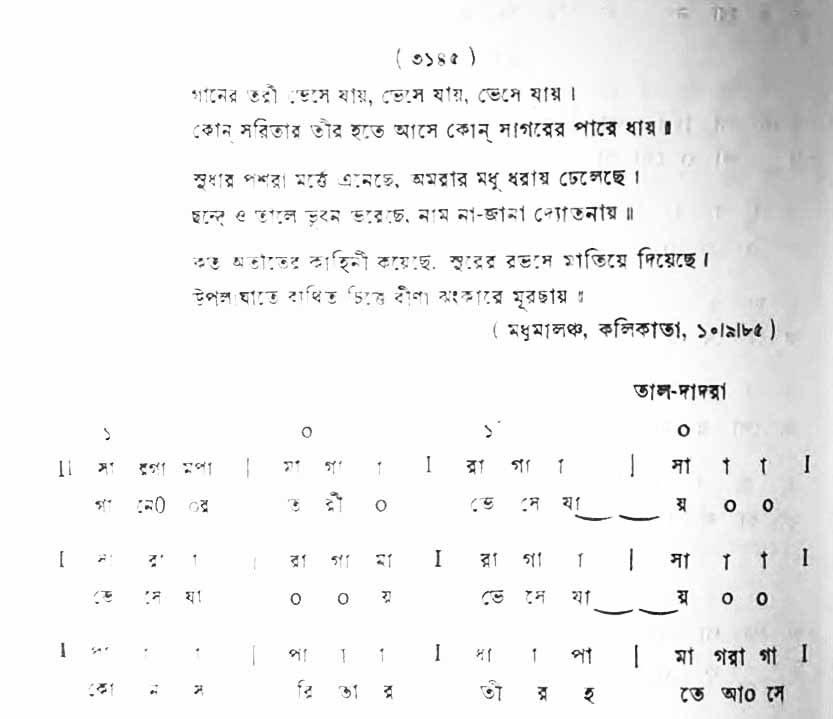 ( ৩১৪৫ )
গানের তরী ভেসে যায়, ভেসে যায়, ভেসে যায় ।
কোন্ সরিতার তীর হতে আসে কোন্ সাগরের পারে ধায় ॥
সুধার পশরা মর্ত্তে এনেছে, অমরার মধু ধরায় ঢেলেছে ।
ছন্দে ও তালে ভুবন ভরেছে, নাম না-জানা দ্যোতনায় ॥
কত অতীতের কাহিনী কয়েছে, সুরের রভসে মাতিয়ে দিয়েছে ।
উপলাঘাতে ব্যথিত চিত্তে বীণা ঝংকারে মূরছায় ॥
( মধুমালঞ্চ, কলিকাতা, ১০।৯।৮৫ )
তাল-দাদরা
১ ০ ১ ০
II সা রগা মপা | মা গা া I রা গা া | সা া া I
গা নে০ ০র ত রী ০ ভে সে যা য় ০ ০
I সা রা া | রা গা মা I রা গা া | সা া া I
ভে সে যা ০ ০ য় ভে সে যা য় ০ ০
I পা া া | পা া া I ধা া পা | মা গরা গা I
কো ন স রি তা র তী র হ তে আ০ সে